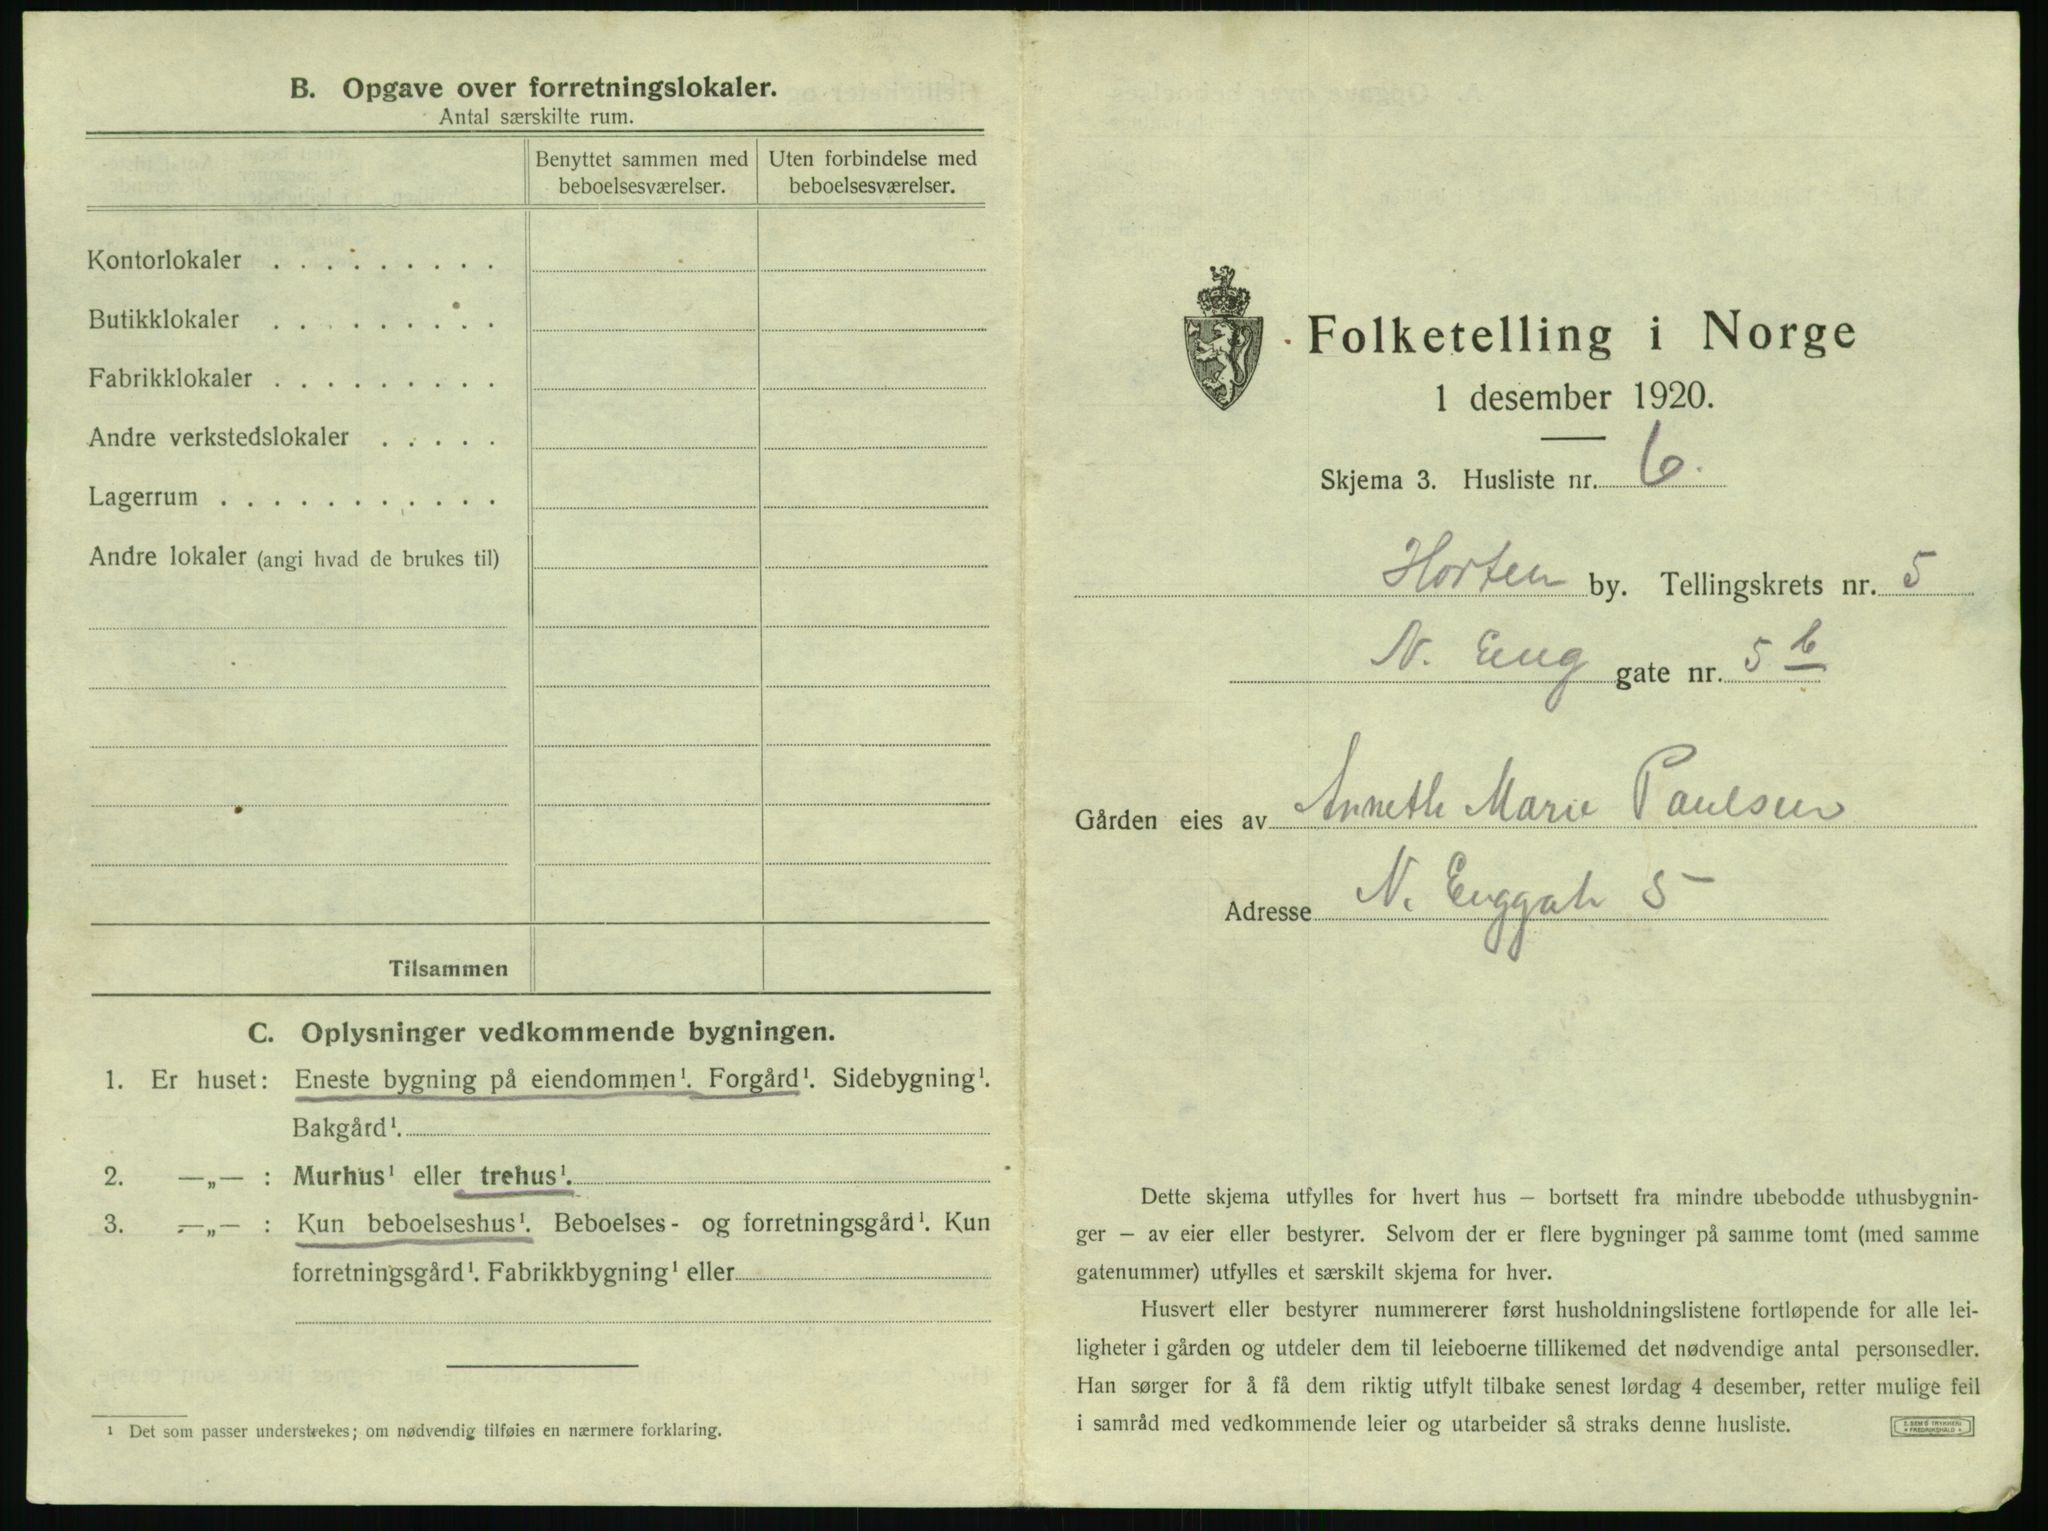 B. Opgave over forretningslokaler.
Antal særskilte rum.
Benyttet sammen med beboelsesværelser.
Uten forbindelse med beboelsesværelser.
Kontorlokaler . . . . . . . . .
Butikklokaler . . . . . . . . .
Fabrikklokaler . . . . . . . . .
Andre verkstedslokaler . . . . .
Lagerrum . . . . . . . . . . .
Andre lokaler (angi hvad de brukes til)
Tilsammen
C. Oplysninger vedkommende bygningen.
1. Er huset: Eneste bygning på eiendommen¹. Forgård¹. Sidebygning¹.
Bakgård¹.
2. —„— : Murhus¹ eller trehus¹.
3. —„— : Kun beboelseshus¹. Beboelses- og forretningsgård¹. Kun
forretningsgård¹. Fabrikkbygning¹ eller
¹ Det som passer understrekes; om nødvendig tilføies en nærmere forklaring.
Folketelling i Norge
1 desember 1920.
Skjema 3. Husliste nr. 6.
Horten by. Tellingskrets nr. 5
N. Eng gate nr. 5 b
Gården eies av Anneth Marie Paulsen
Adresse N. Enggate 5
Dette skjema utfylles for hvert hus – bortsett fra mindre ubebodde uthusbygnin-
ger – av eier eller bestyrer. Selvom der er flere bygninger på samme tomt (med samme
gatenummer) utfylles et særskilt skjema for hver.
Husvert eller bestyrer nummererer først husholdningslistene fortløpende for alle lei-
ligheter i gården og utdeler dem til leieboerne tillikemed det nødvendige antal personsedler.
Han sørger for å få dem riktig utfylt tilbake senest lørdag 4 desember, retter mulige feil
i samråd med vedkommende leier og utarbeider så straks denne husliste.
E. SEM'S TRYKKERI
• FREDRIKSHALD •